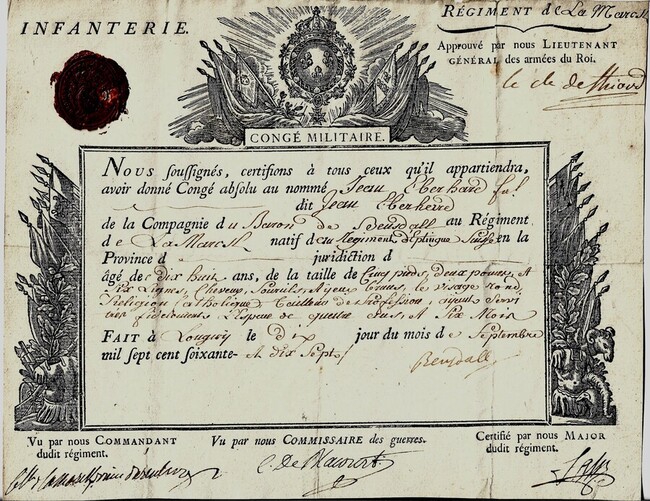 INFANTERIE.
RÉGIMENT de La Marck
Approuvé par nous LIEUTENANT
GÉNÉRAL des armées du Roi.
le cte de Thiard
CONGÉ MILITAIRE.
NOUS soussignés, certifions à tous ceux qu'il appartiendra,
avoir donné Congé absolu au nommé Jean Eberhard
dit Jean Eberhard
de la Compagnie du Baron de au Régiment
de La Marck natif du Régiment en la
Province d juridiction d
âgé de dix huit ans, de la taille de Cinq pieds, deux pouces, et
six Lignes, Cheveux, Sourcils, et yeux bruns, le visage rond,
Religion Catholique de Profession, ayant servi
fidelement L'Espace de quatre ans, et Six Mois
FAIT à Longwy le jour du mois de Septembre
mil sept cent soixante- et dix Sept
Vu par nous COMMANDANT
dudit régiment.
Vu par nous COMMISSAIRE des guerres.
Certifié par nous MAJOR
dudit régiment.